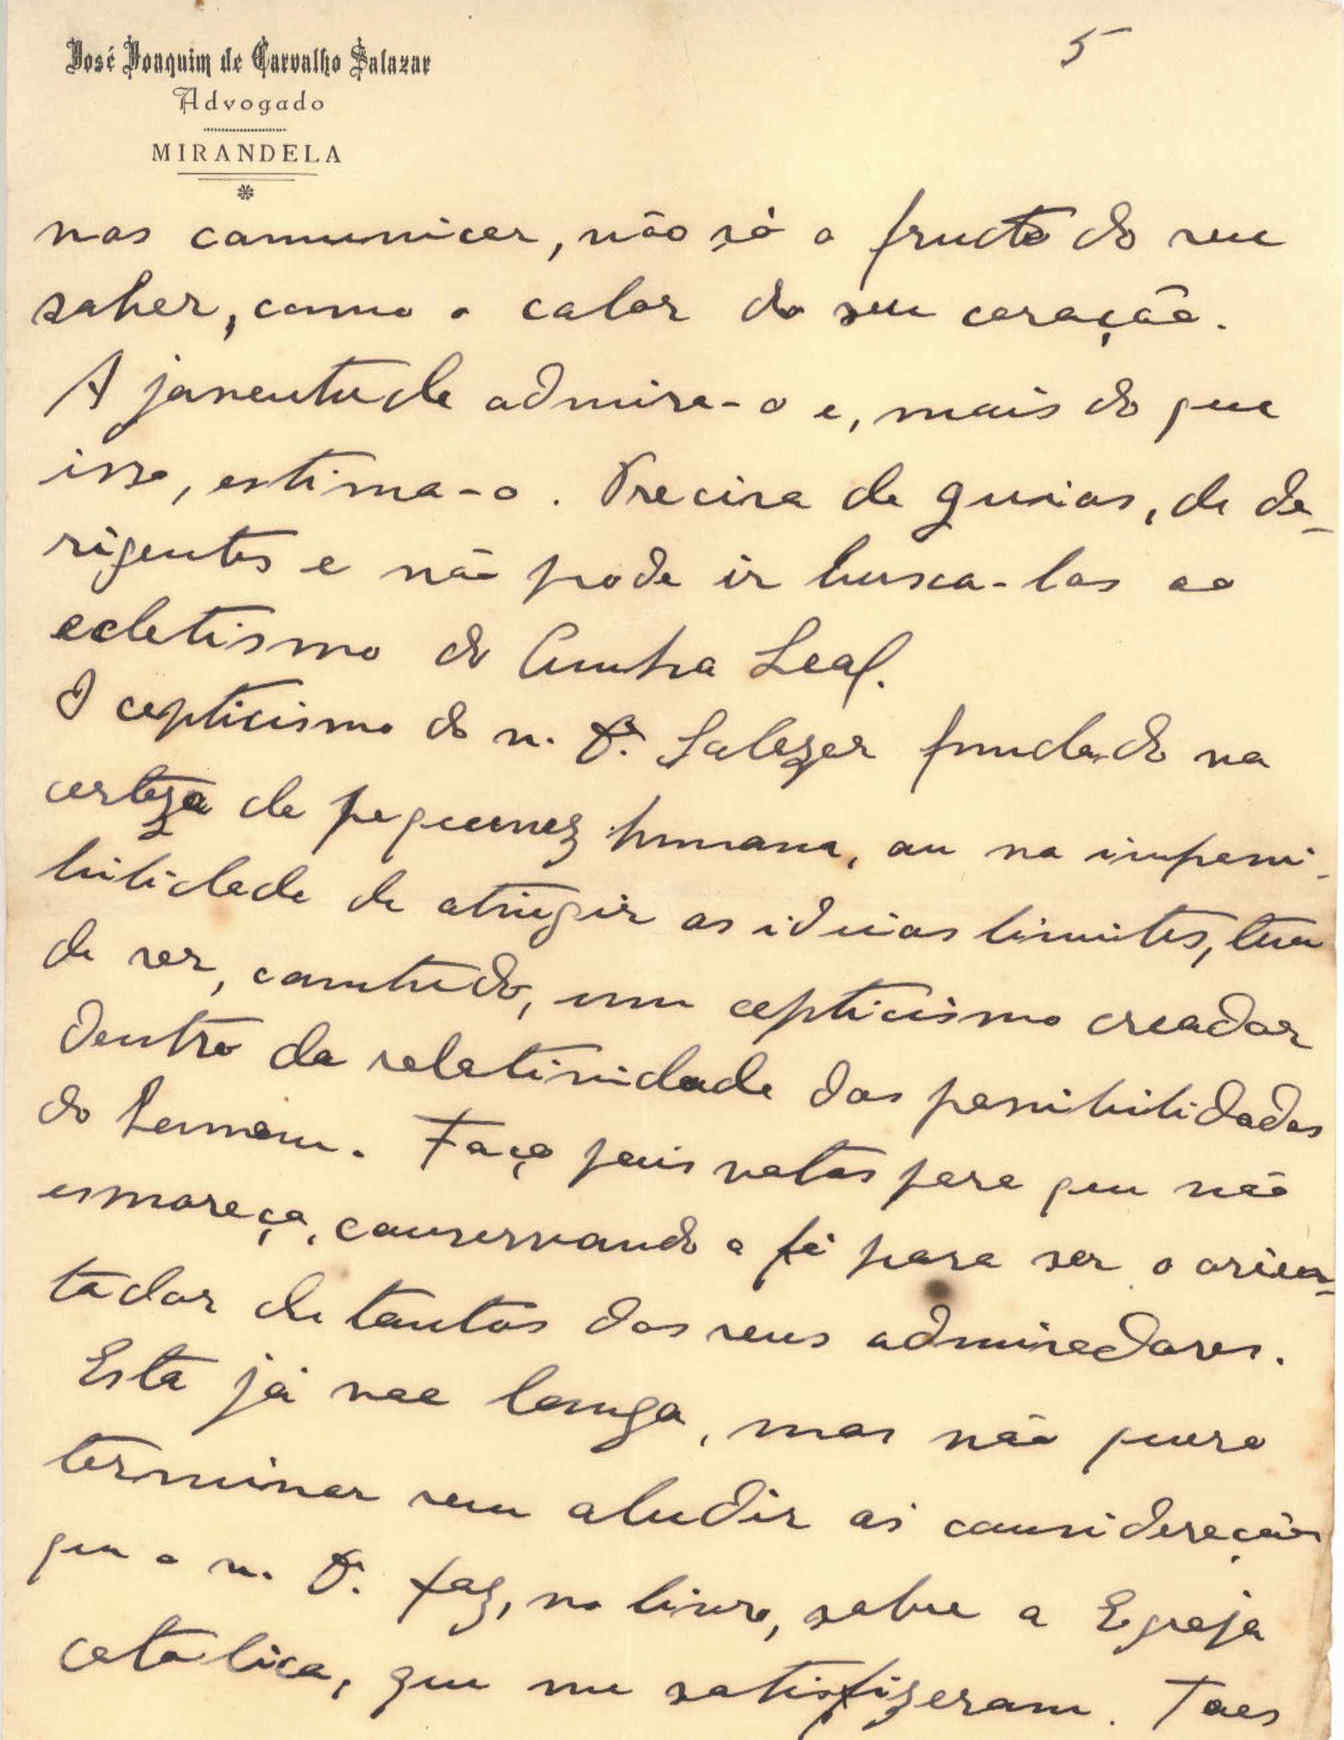 José Joaquim de Carvalho Salazar
Advogado
MIRANDELA
5
nos comunicar, não só o fructo do seu
saber, como o calor do seu coração.
A juventude admira-o e, mais do que
isso, estima-o. Precisa de guias, de de-
rigentes e não pode ir busca-los ao
ecletismo do Cunha Leal.
O cepticismo do n. Dr. Salazar fundado na
certeza da pequenez humana, ou na impossi-
bilidade de atingir as ideias limites, tem
de ser, comtudo, um cepticismo creador
dentro da relatividade das possibilidades
do homem. Faço pois votos para que não
esmoreça, conservando a fé para ser o orien-
tador de tantos dos seus admiradores.
Esta já vae longa, mas não quero
terminar sem aludir ás considerações
que o n. Dr. faz, no livro, sobre a Egreja
catolica, que me satisfizeram. Taes